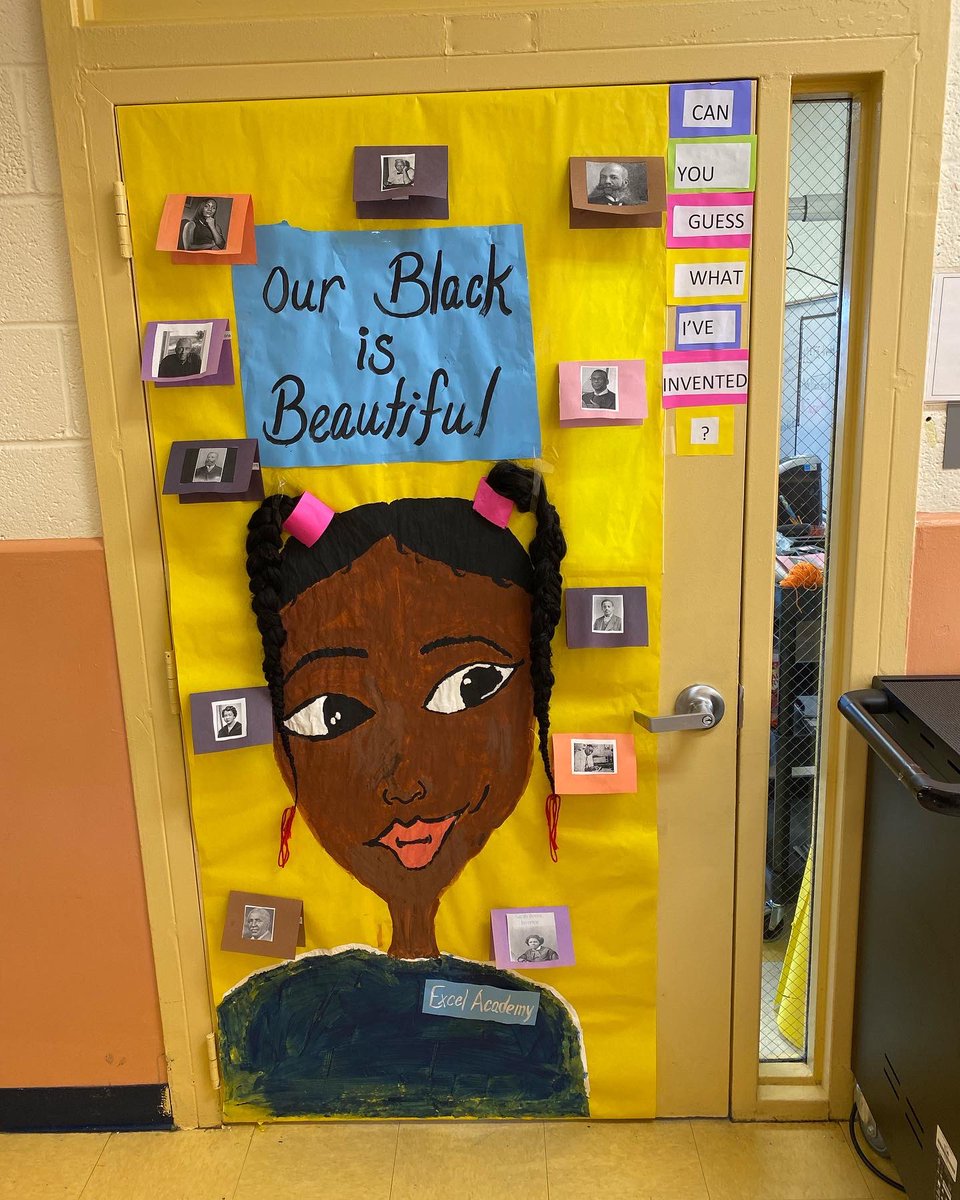 Our Black
is
Beautiful
CAN
YOU
GUESS
WHAT
I'VE
INVENTED
?
Excel Academy